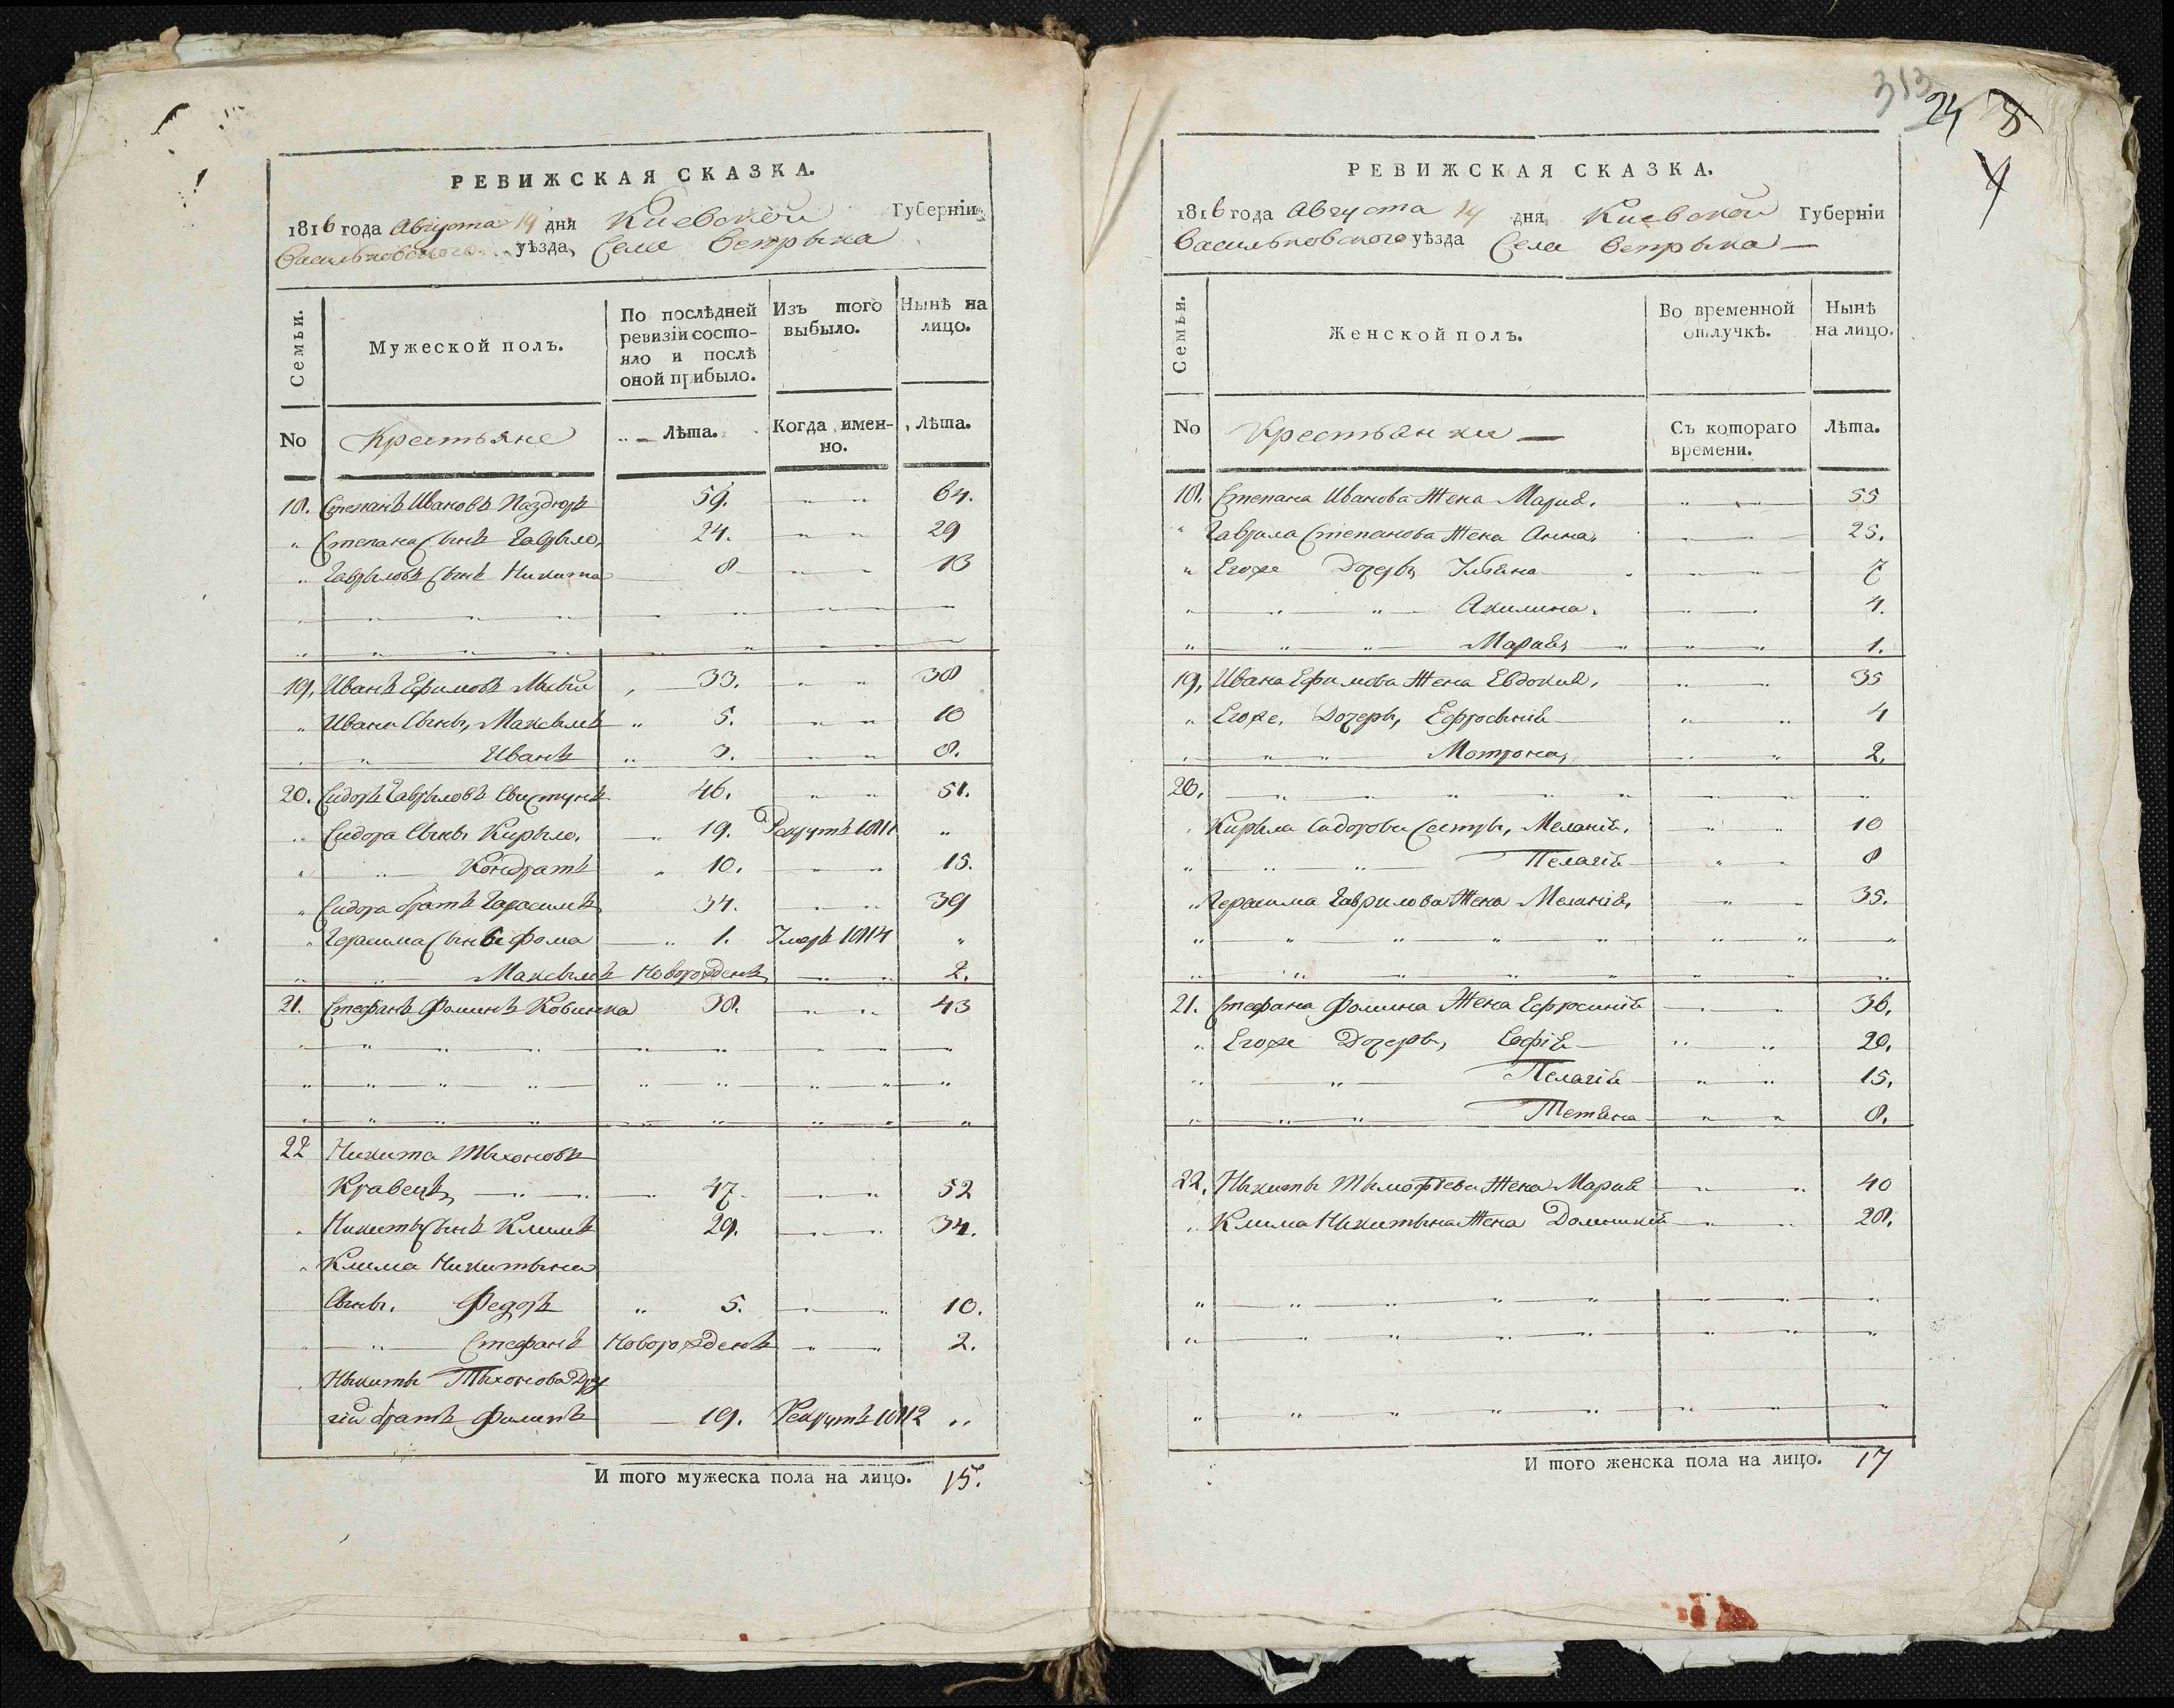 РЕВИЖСКАЯ СКАЗКА.
1816 года Августа 14 дня Киевской Губерніи
Васильковского уѣзда, Села Ветрыка
Семьи.
Мужеской полъ.
По послѣдней ревизіи состояло и послѣ оной прибыло.
Изъ того выбыло.
Нынѣ на лицо.
No Крестьяне Лѣта. Когда имен-но. Лѣта.
18. Степанъ Ивановъ 59. 64.
Степана Сынъ Гаврыло, 24. 29
Гаврыловъ Сынъ Никита 8 13
19, Иванъ Ефимовъ 33. 38
Ивана Сыны, Максымъ 5. 10
Иванъ 3. 8.
20. Сидоръ Гаврыловъ Свистунъ 46. 51.
Сидора Сыны Кирыло, 19. Рекрутъ 1811
Кондратъ 10. 15.
Сидора братъ Гарасимъ 34. 39
Герасима Сынъ Фома 1. Умеръ 1814
Максымъ Новорожденъ 2.
21. Стефанъ Фоминъ 38. 43
22 Никита Тыхоновъ
Кравецъ, 47 52
Никиты Сынъ Климъ 29. 34.
Клима Никитына
Сыны. Федоръ 5. 10.
Стефанъ Новорожденъ 2.
Никиты Тыхонова Дру
гій братъ Филипъ 19. Рекрутъ 1812
И того мужеска пола на лицо. 15.
313
24
РЕВИЖСКАЯ СКАЗКА.
1816 года Августа 14 дня Киевской Губерніи
Васильковского уѣзда Села Ветрыка
Семьи.
Женской полъ.
Во временной отлучкѣ.
Нынѣ на лицо.
No Крестьянки Съ котораго времени. Лѣта.
18. Степана Иванова Жена Марія. 55
Гаврила Степанова Жена Анна, 25.
Егоже Дочеры Ульяна 7
Акилина. 4.
Марія, 1.
19, Ивана Ефимова Жена Евдокія, 35
Егоже. Дочеры, Ефросынія 4
Мотрона, 2,
20,
Кирыла Сидорова Сестры, Меланія, 10
Пелагія 8
Герасима Гаврилова Жена Меланія, 35.
21. Стефана Фомина Жена Ефросинія 36,
Егоже Дочеры, Софія 20,
Пелагія 15,
Тетяна 8.
22, Никиты Тымофѣева Жена Марія 40
Клима Никитына Жена Доминикія 28,
И того женска пола на лицо. 17